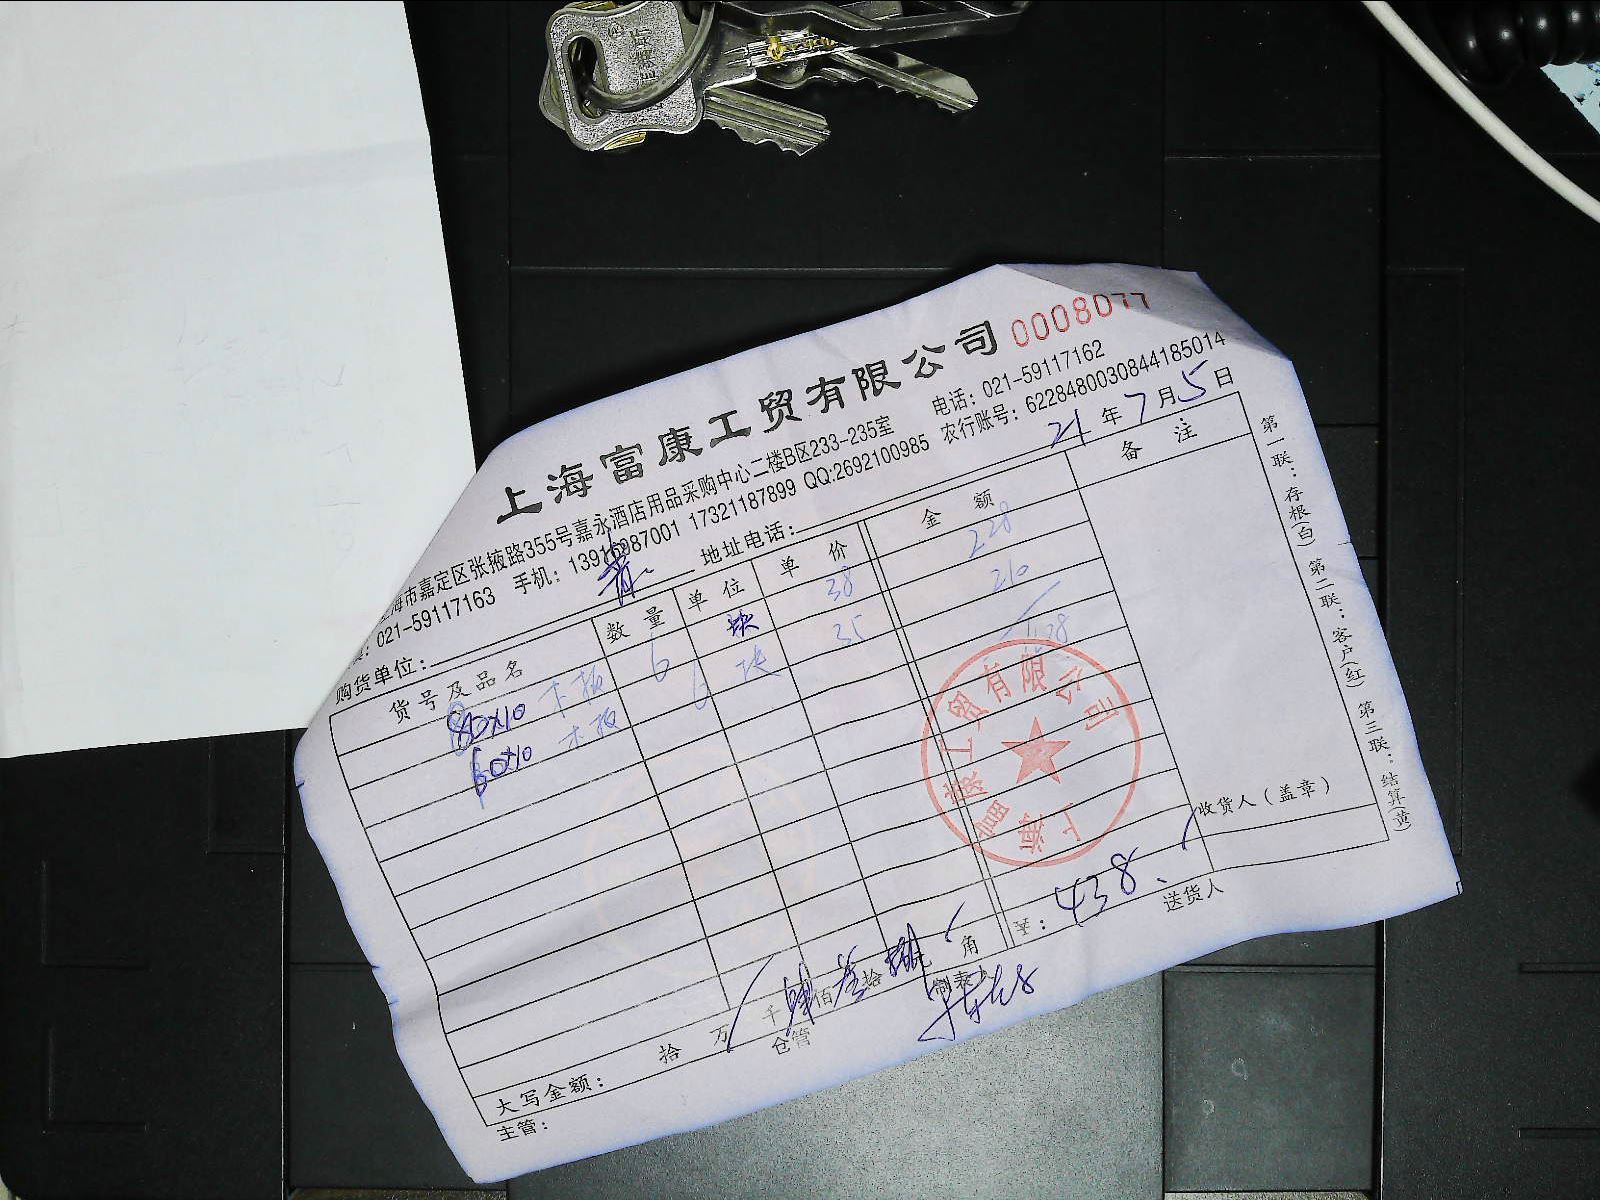 上海富康工贸有限公司 0008077
海市嘉定区张掖路355号嘉永酒店用品采购中心二楼B区233-235室 电话：021-59117162
：021-59117163 手机：13916087001 17321187899 QQ:2692100985 农行账号：6228480030844185014
购货单位： 地址电话： 21年7月5日
货号及品名 数量 单位 单价 金额 备注
80×10 木板 6 块 38 228
60×10 木板 6 块 35 210
438
收货人（盖章）
大写金额： 拾 万 千 肆佰 叁拾 捌 角 ￥：438.
主管： 仓管 制表人 送货人
第一联：存根(白) 第二联：客户(红) 第三联：结算(黄)
上海富康工贸有限公司